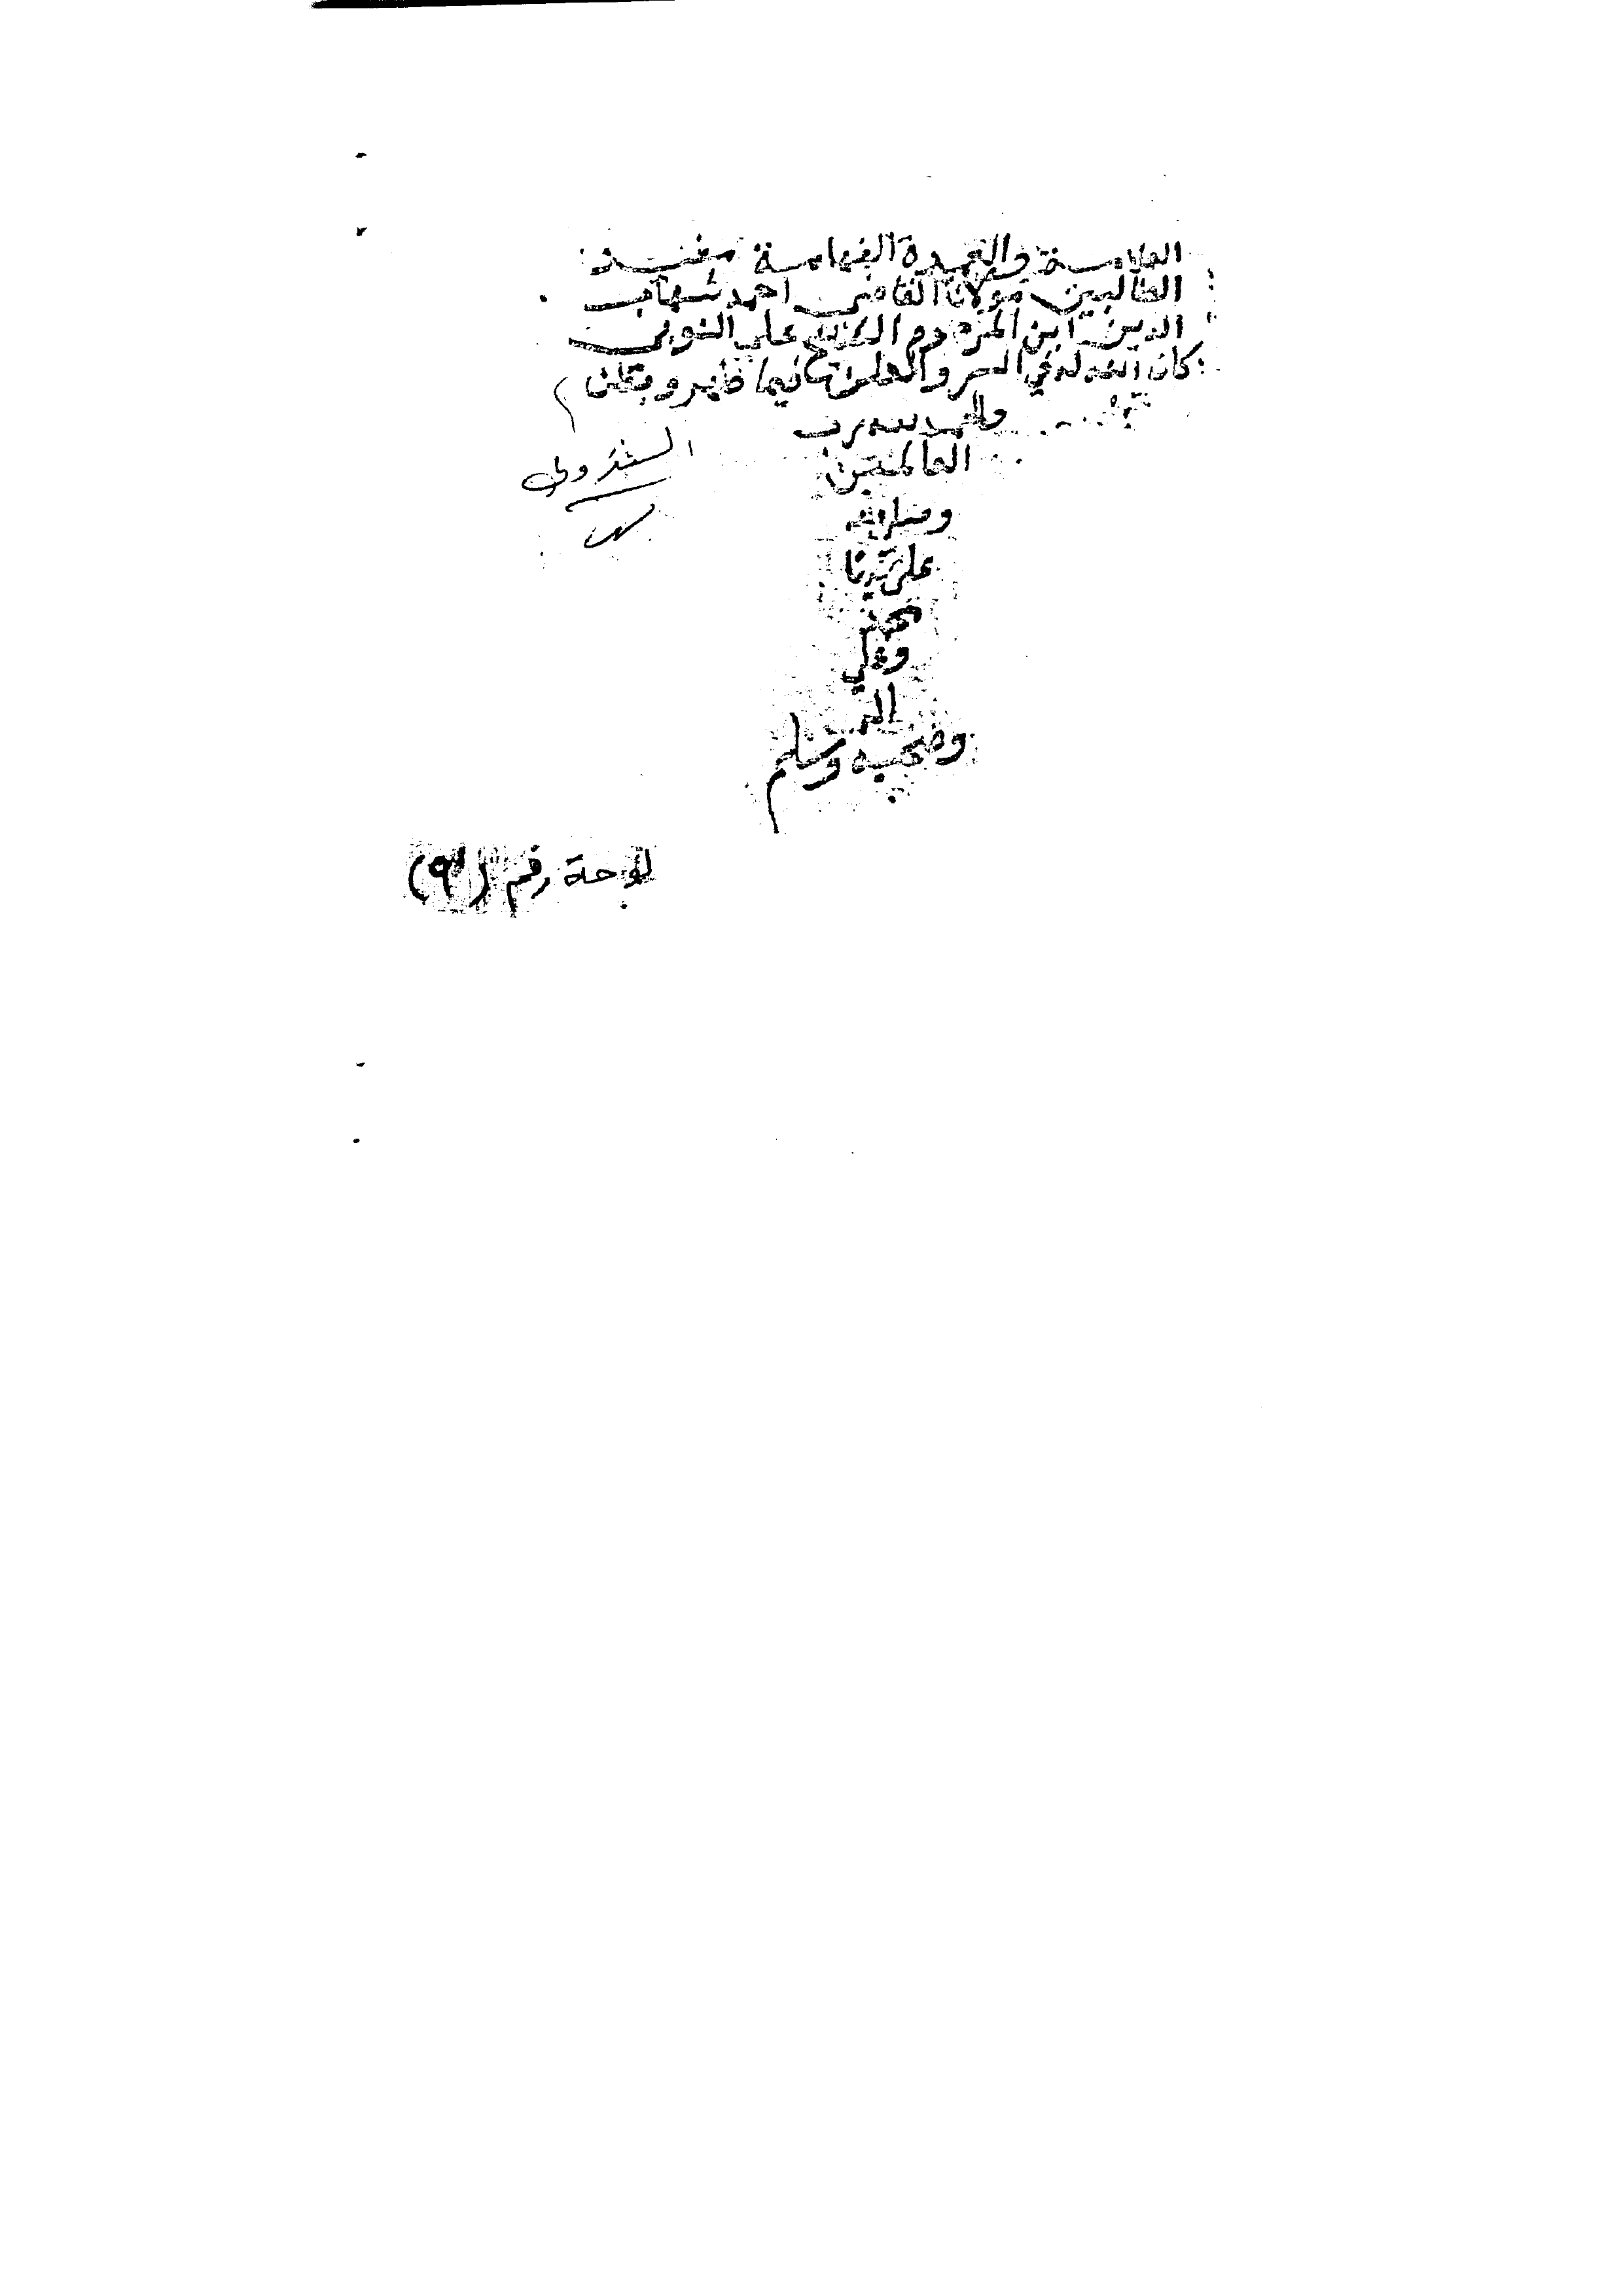 العلامة والعمدة الفهامة مفيد
الطالبين مولانا القاضى احمد شهاب
الدين ابن المرحوم الشيخ على النوبى
كان الله له في السر والعلن فيما ظهر وبطن
والحمد لله رب
العالمين
وصلى الله
على سيدنا
محمد
وعلى
اله
وصحبه وسلم
لوحة رقم